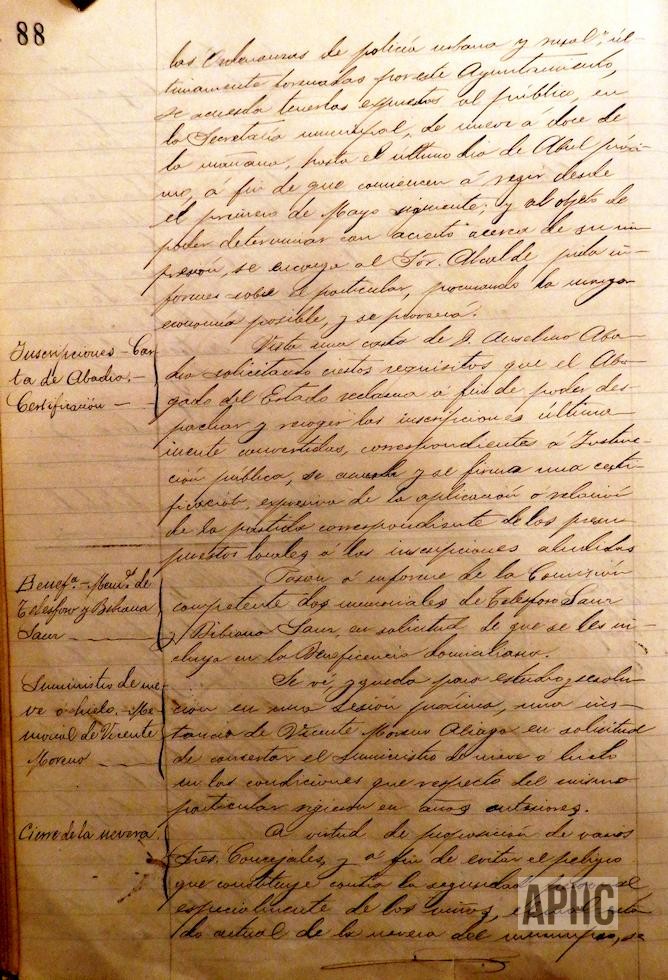 88
las Ordenanzas de policía urbana y rural, úl-
timamente formadas por este Ayuntamiento,
se acuerda tenerlas expuestas al público, en
la Secretaría municipal, de nueve a doce de
la mañana, hasta el último día de Abril próxi-
mo, á fin de que comiencen á regir desde
el primero de Mayo siguiente; y al objeto de
poder determinar con acierto acerca de su im-
presión, se encarga al Sor. Alcalde pida in-
formes sobre el particular, procurando la mayor
economía posible, y se proveerá.
Inscripciones - Car-
ta de Abadía. -
Certificación -
Vista una carta de D. Anselmo Aba-
día solicitando ciertos requisitos que el Abo-
gado del Estado reclama á fin de poder des-
pachar y recoger las inscripciones última-
mente convertidas, correspondientes á Instruc-
ción pública, se acuerda y se firma una certi-
ficación, expresiva de la aplicación ó relación
de la partida correspondiente de los presu-
puestos locales á las inscripciones aludidas
Benefª. - Meml. de
Telesforo y Bibiana
Saur
Pasan á informe de la Comisión
competente dos memoriales de Telesforo Saur
y Bibiana Saur, en solicitud de que se les in-
cluya en la Beneficencia domiciliaria.
Suministro de nie-
ve ó hielo. - Me-
morial de Vicente
Moreno
Se vé, y queda para estudio y resolu-
ción en una sesión próxima, una ins-
tancia de Vicente Moreno Aliaga en solicitud
de concertar el suministro de nieve ó hielo
en las condiciones que respecto del mismo
particular rigieron en años anteriores.
Cierre de la nevera
A virtud de proposición de varios
Sres. Concejales, y á fin de evitar el peligro
que constituye contra la seguridad
especialmente de los niños, el
do actual de la nevera del municipio, se
APHC